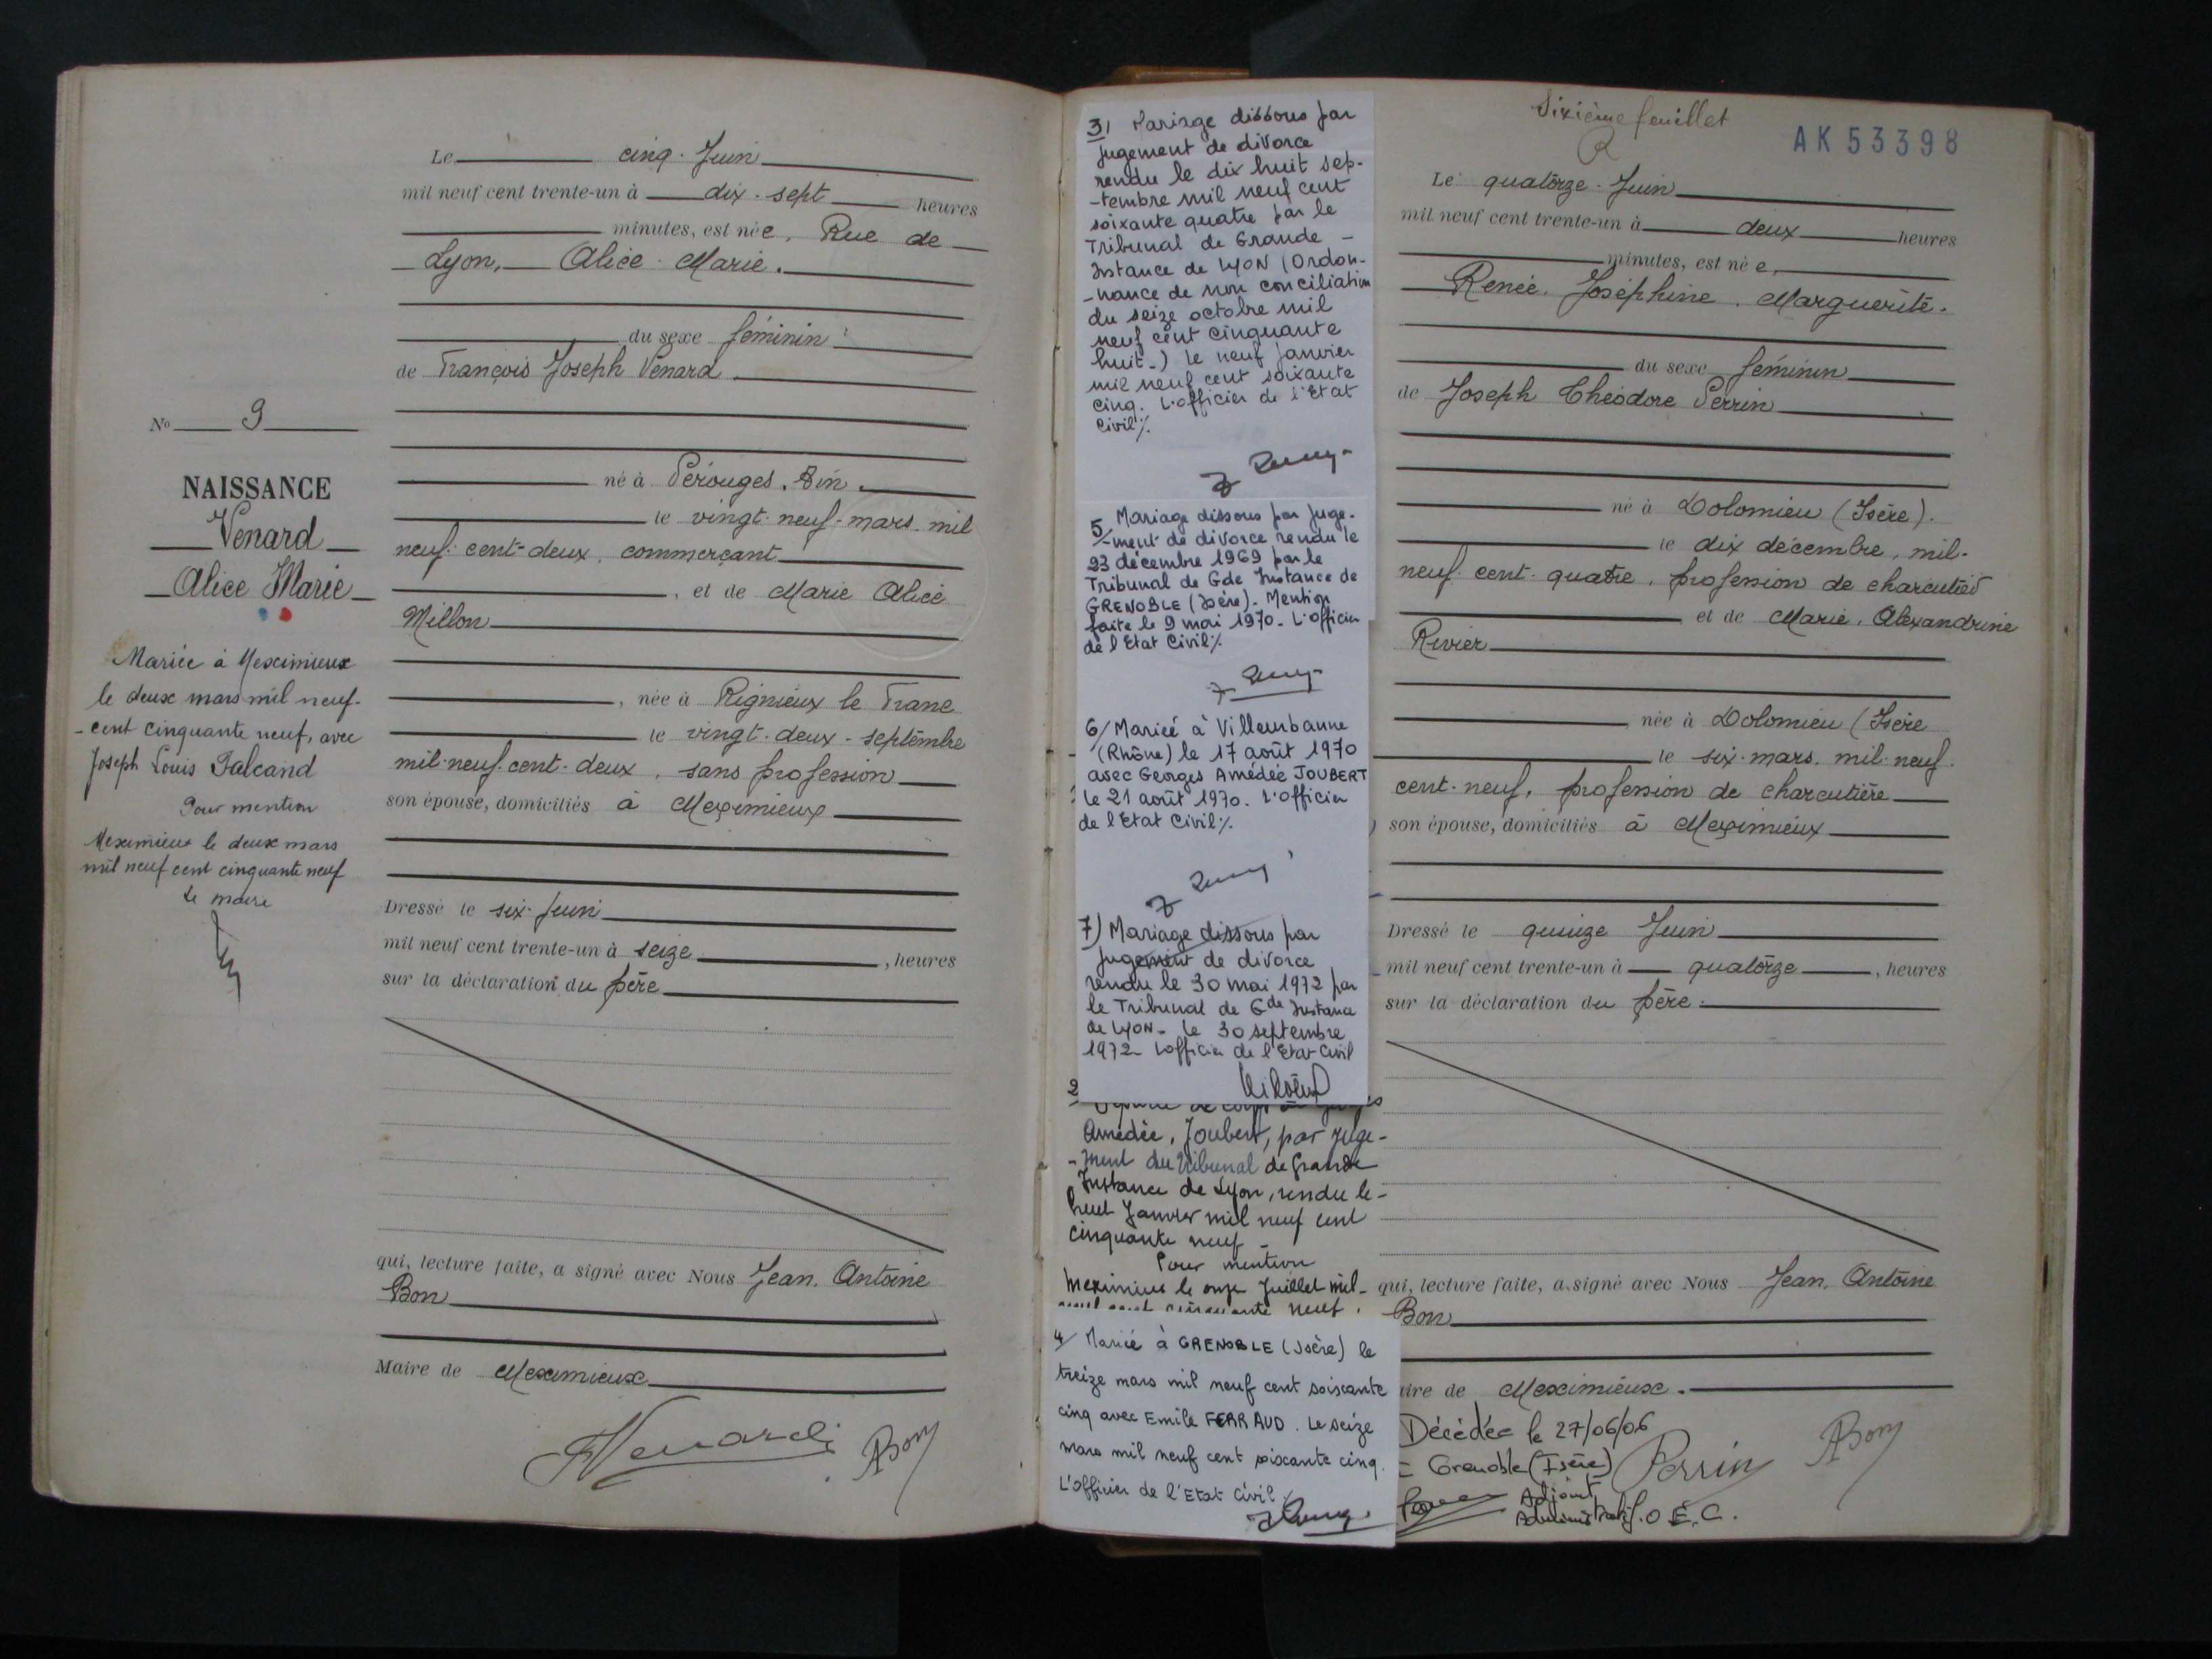 Le cinq. Juin
mil neuf cent trente-un à dix-sept heures
minutes, est née, Rue de
Lyon, Alice Marie.
du sexe féminin
de François Joseph Venard
No 9
né à Pérouges. Ain.
NAISSANCE
le vingt-neuf-mars. mil
Venard
neuf-cent-deux, commerçant
Alice Marie
, et de Marie Alice
Millon
Mariée à Meximieux
le deux mars mil neuf-
-cent cinquante neuf, avec
Joseph Louis Falcand
Pour mention
Meximieux le deux mars
mil neuf cent cinquante neuf
Le maire
, née à Rignieux le Franc
le vingt-deux-septembre
mil-neuf-cent-deux, sans profession
son épouse, domiciliés à Meximieux
Dressé le six-Juin
mil neuf cent trente-un à seize , heures
sur la déclaration du père
qui, lecture faite, a signé avec Nous Jean. Antoine
Bon
Maire de Meximieux
Venard
ABon
3) Mariage dissous par
jugement de divorce
rendu le dix huit sep-
-tembre mil neuf cent
soixante quatre par le
Tribunal de Grande -
Instance de LYON (Ordon-
-nance de non conciliation
du seize octobre mil
neuf cent cinquante
huit-) le neuf janvier
mil neuf cent soixante
cinq. L'officier de l'Etat
Civil ./.
5 Mariage dissous par juge-
-ment de divorce rendu le
23 décembre 1969 par le
Tribunal de Gde Instance de
GRENOBLE (Isère). Mention
faite le 9 mai 1970 - L'Officier
de l'Etat Civil ./.
6/ Mariée à Villeurbanne
(Rhône) le 17 août 1970
avec Georges Amédée JOUBERT
le 21 août 1970. L'officier
de l'Etat Civil ./.
7) Mariage dissous par
jugement de divorce
rendu le 30 mai 1972 par
le Tribunal de Gde Instance
de LYON - le 30 septembre
1972 - L'officier de l'Etat Civil
2
Amédée, Joubert, par juge-
-ment du Tribunal de Grande
Instance de Lyon, rendu le -
huit Janvier mil neuf cent
cinquante neuf
Pour mention
Meximieux le onze Juillet mil-
neuf cent cinquante neuf.
4/ Mariée à GRENOBLE (Isère) le
treize mars mil neuf cent soixante
cinq avec Emile FERRAUD. Le seize
mars mil neuf cent soixante cinq.
L'Officier de l'Etat Civil
Sixième feuillet
AK 53398
Le quatorze-Juin
mil neuf cent trente-un à deux heures
minutes, est née,
Renée. Joséphine. Marguerite.
du sexe féminin
de Joseph Théodore Perrin
né à Dolomieu (Isère).
le dix décembre, mil-
neuf-cent-quatre, profession de charcutier
et de Marie. Alexandrine
Rivier
née à Dolomieu (Isère
le six-mars. mil-neuf-
cent-neuf, profession de charcutière
son épouse, domiciliés à Meximieux
Dressé le quinze Juin
mil neuf cent trente-un à quatorze , heures
sur la déclaration du père.
qui, lecture faite, a signé avec Nous Jean. Antoine
Bon
aire de Meximieux.
Décédée le 27/06/06
Grenoble (Isère)
Perrin
ABon
Adjoint
Administratif. O.E.C.